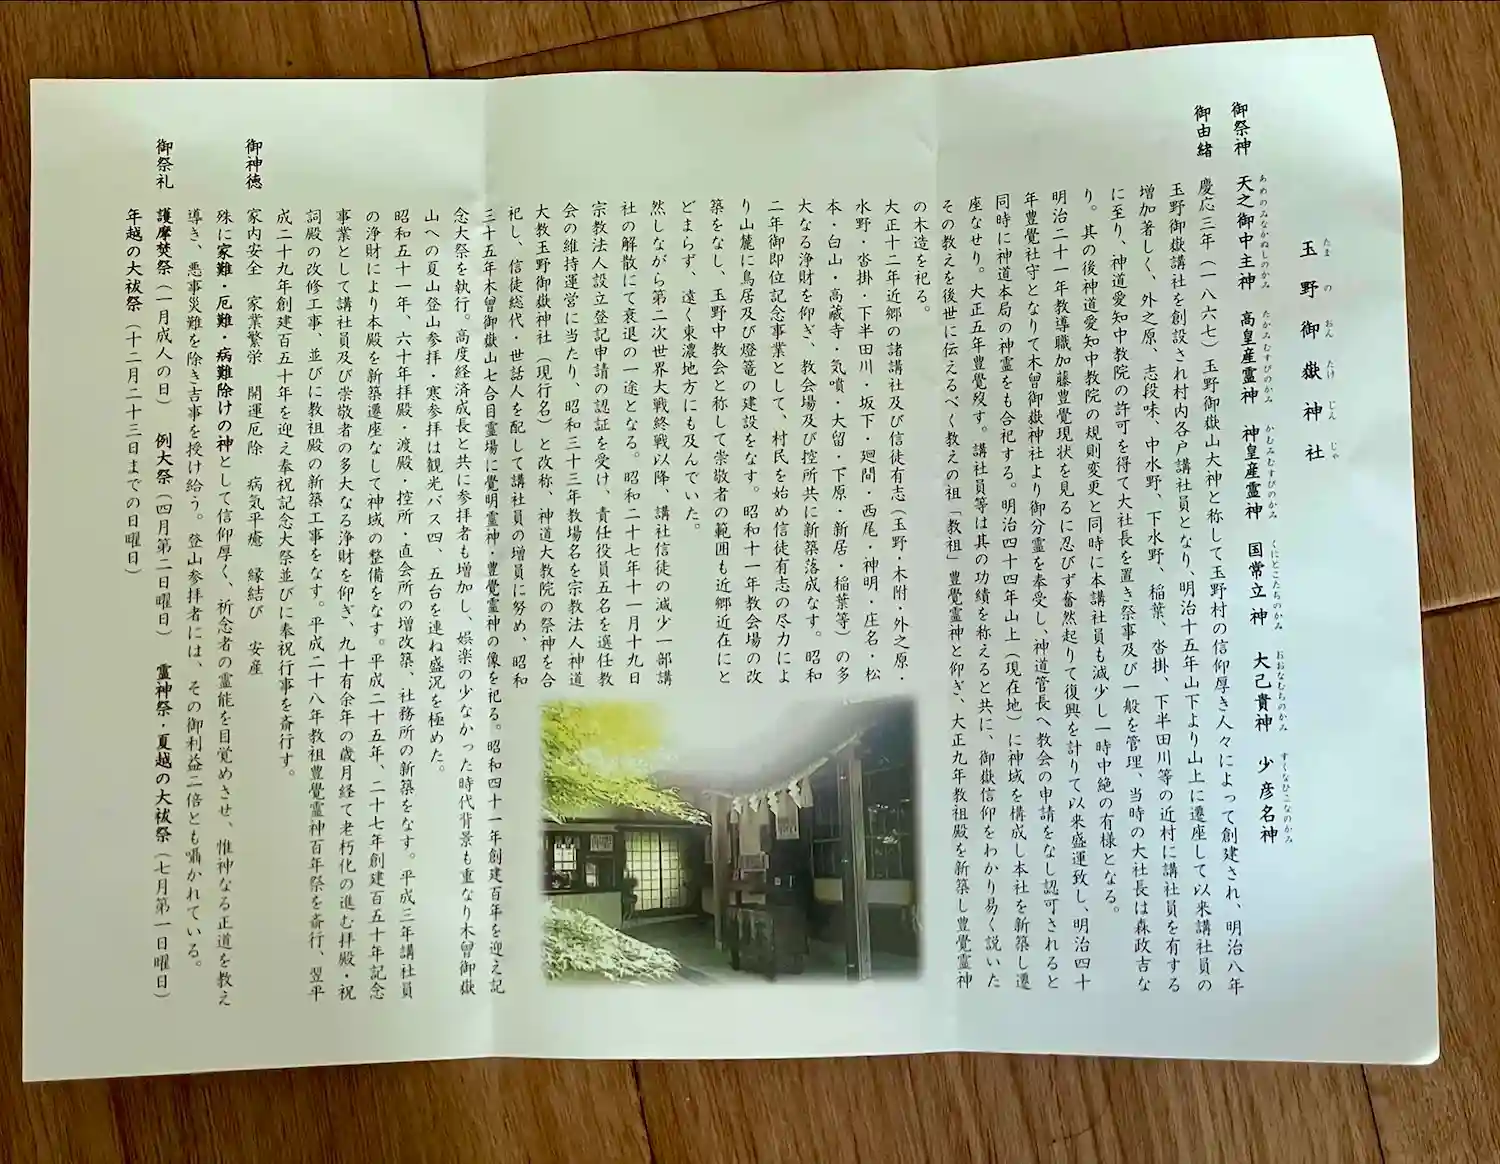 玉野御嶽神社
たまのおんたけじんじゃ
御祭神 天之御中主神 高皇産霊神 神皇産霊神 国常立神 大己貴神 少彦名神
あめのみなかぬしのかみ たかみむすびのかみ かむみむすびのかみ くにとこたちのかみ おおなむちのかみ すくなひこなのかみ
御由緒
慶応三年(一八六七)玉野御嶽山大神と称して玉野村の信仰厚き人々によって創建され、明治八年
玉野御嶽講社を創設され村内各戸講社員となり、明治十五年山下より山上に遷座して以来講社員の
増加著しく、外之原、志段味、中水野、下水野、稲葉、沓掛、下半田川等の近村に講社員を有する
に至り、神道愛知中教院の許可を得て大社長を置き祭事及び一般を管理、当時の大社長は森政吉な
り。其の後神道愛知中教院の規則変更と同時に本講社員も減少し一時中絶の有様となる。
明治二十一年教導職加藤豊覺現状を見るに忍びず奮然起りて復興を計りて以来盛運致し、明治四十
年豊覺社守となりて木曽御嶽神社より御分霊を奉受し、神道管長へ教会の申請をなし認可されると
同時に神道本局の神霊をも合祀する。明治四十四年山上(現在地)に神域を構成し本社を新築し遷
座なせり。大正五年豊覺歿す。講社員等は其の功績を称えると共に、御嶽信仰をわかり易く説いた
その教えを後世に伝えるべく教えの祖「教祖」豊覺霊神と仰ぎ、大正九年教祖殿を新築し豊覺霊神
の木造を祀る。
大正十二年近郷の諸講社及び信徒有志(玉野・木附・外之原・
水野・沓掛・下半田川・坂下・廻間・西尾・神明・庄名・松
本・白山・高蔵寺・気噴・大留・下原・新居・稲葉等)の多
大なる浄財を仰ぎ、教会場及び控所共に新築落成なす。昭和
二年御即位記念事業として、村民を始め信徒有志の尽力によ
り山麓に鳥居及び燈篭の建設をなす。昭和十一年教会場の改
築をなし、玉野中教会と称して崇敬者の範囲も近郷近在にと
どまらず、遠く東濃地方にも及んでいた。
然しながら第二次世界大戦終戦以降、講社信徒の減少一部講
社の解散にて衰退の一途となる。昭和二十七年十一月十九日
宗教法人設立登記申請の認証を受け、責任役員五名を選任教
会の維持運営に当たり、昭和三十三年教場名を宗教法人神道
大教玉野御嶽神社(現行名)と改称、神道大教院の祭神を合
祀し、信徒総代・世話人を配して講社員の増員に努め、昭和
三十五年木曽御嶽山七合目霊場に覺明霊神・豊覺霊神の像を祀る。昭和四十一年創建百年を迎え記
念大祭を執行。高度経済成長と共に参拝者も増加し、娯楽の少なかった時代背景も重なり木曽御嶽
山への夏山登山参拝・寒参拝は観光バス四、五台を連ね盛況を極めた。
昭和五十一年、六十年拝殿・渡殿・控所・直会所の増改築、社務所の新築をなす。平成三年講社員
の浄財により本殿を新築遷座なして神域の整備をなす。平成二十五年、二十七年創建百五十年記念
事業として講社員及び崇敬者の多大なる浄財を仰ぎ、九十有余年の歳月経て老朽化の進む拝殿・祝
詞殿の改修工事、並びに教祖殿の新築工事をなす。平成二十八年教祖豊覺霊神百年祭を斎行、翌平
成二十九年創建百五十年を迎え奉祝記念大祭並びに奉祝行事を斎行す。
御神徳
家内安全 家業繁栄 開運厄除 病気平癒 縁結び 安産
殊に家難・厄難・病難除けの神として信仰厚く、祈念者の霊能を目覚めさせ、惟神なる正道を教え
導き、悪事災難を除き吉事を授け給う。登山参拝者には、その御利益二倍とも囁かれている。
御祭礼
護摩焚祭(一月成人の日) 例大祭(四月第二日曜日) 霊神祭・夏越の大祓祭(七月第一日曜日)
年越の大祓祭(十二月二十三日までの日曜日)